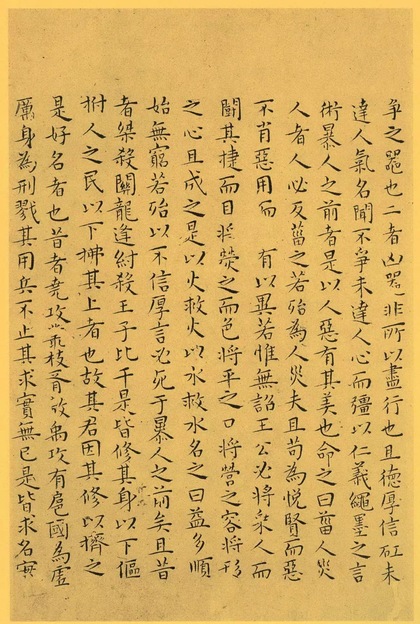 争之器也二者凶器非所以盡行也且德厚信矼未
達人氣名聞不爭未達人心而彊以仁義繩墨之言
術暴人之前者是以人惡有其美也命之曰菑人災
人者人必反菑之若殆為人災夫且苟為悅賢而惡
不肖惡用而 有以異若惟無詔王公必將乘人而
鬬其捷而目將熒之而色將平之口將營之容將形
之心且成之是以火救火以水救水名之曰益多順
始無窮若殆以不信厚言必死于暴人之前矣且昔
者桀殺關龍逢紂殺王子比干是皆修其身以下傴
拊人之民以下拂其上者也故其君因其修以擠之
是好名者也昔者堯攻叢枝胥敖禹攻有扈國為虛
厲身為刑戮其用兵不止其求實無已是皆求名實